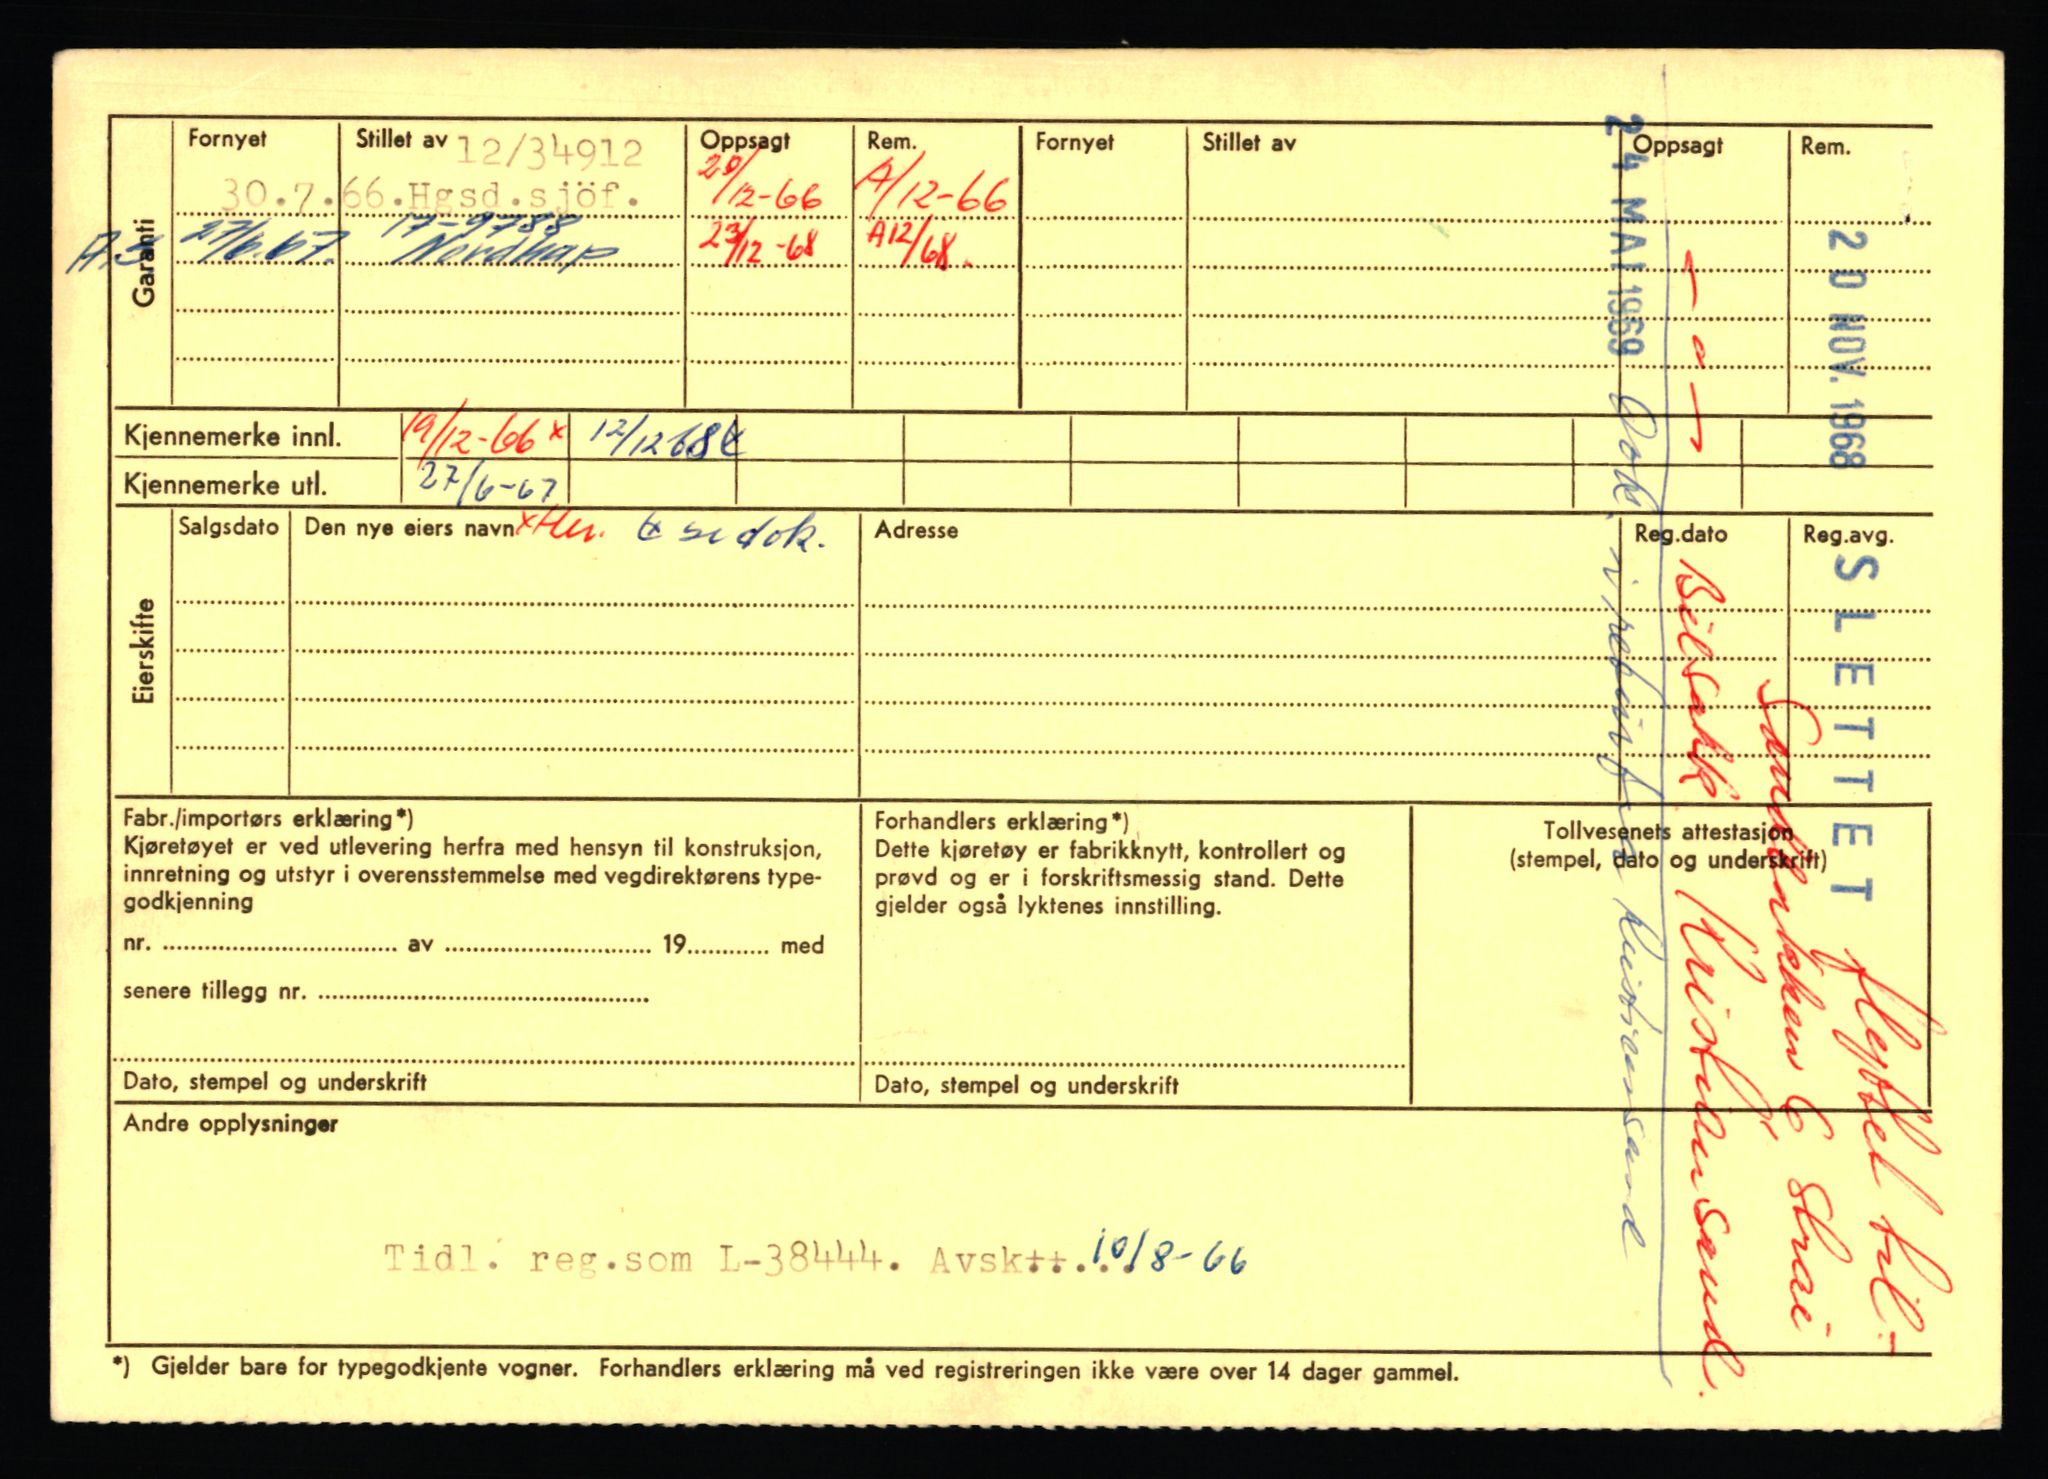 Garanti
Fornyet Stillet av 12/34912 Oppsagt Rem. Fornyet Stillet av Oppsagt Rem.
30.7.66.Hgsd.sjöf. 20/12-66 A/12-66
A.S 27/6.67. 17-9788 Nordkap 23/12-68 A12/68.
Kjennemerke innl. 19/12-66 x 12/12 68
Kjennemerke utl. 27/6-67
Eierskifte
Salgsdato Den nye eiers navn x Hen. se dok. Adresse Reg.dato Reg.avg.
Fabr./importørs erklæring*)
Kjøretøyet er ved utlevering herfra med hensyn til konstruksjon,
innretning og utstyr i overensstemmelse med vegdirektørens type-
godkjenning
nr. av 19 med
senere tillegg nr.
Dato, stempel og underskrift
Forhandlers erklæring*)
Dette kjøretøy er fabrikknytt, kontrollert og
prøvd og er i forskriftsmessig stand. Dette
gjelder også lyktenes innstilling.
Dato, stempel og underskrift
Tollvesenets attestasjon
(stempel, dato og underskrift)
Andre opplysninger
Tidl. reg.som L-38444. Avsk++... 10/8-66
*) Gjelder bare for typegodkjente vogner. Forhandlers erklæring må ved registreringen ikke være over 14 dager gammel.
20 NOV. 1968 SLETTET flyttet til:
E Strai
- o - Bilsakk Kristiansand.
24 MAI 1969 Dok. i retur fra Kristiansand